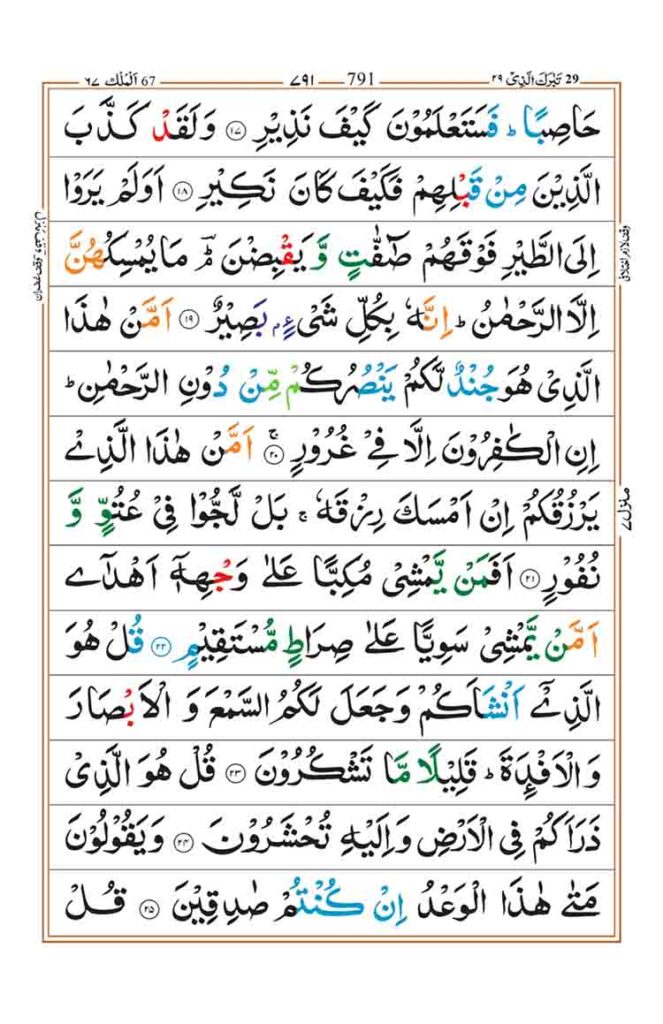 29 تَبٰرَكَ الَّذِیْ ٢٩ 791 ٧٩١ 67 اَلْمُلْك ٦٧
حَاصِبًا ؕ فَسَتَعْلَمُوْنَ كَیْفَ نَذِیْرِ ۝١٧ وَ لَقَدْ كَذَّبَ
الَّذِیْنَ مِنْ قَبْلِهِمْ فَكَیْفَ كَانَ نَكِیْرِ ۝١٨ اَوَلَمْ یَرَوْا
اِلَى الطَّیْرِ فَوْقَهُمْ صٰٓفّٰتٍ وَّ یَقْبِضْنَ ؔۘؕ مَا یُمْسِكُهُنَّ
اِلَّا الرَّحْمٰنُ ؕ اِنَّهٗ بِكُلِّ شَیْءٍۭ بَصِیْرٌ ۝١٩ اَمَّنْ هٰذَا
الَّذِیْ هُوَ جُنْدٌ لَّكُمْ یَنْصُرُكُمْ مِّنْ دُوْنِ الرَّحْمٰنِ ؕ
اِنِ الْكٰفِرُوْنَ اِلَّا فِیْ غُرُوْرٍ ۝ۚ٢٠ اَمَّنْ هٰذَا الَّذِیْ
یَرْزُقُكُمْ اِنْ اَمْسَكَ رِزْقَهٗ ۚ بَلْ لَّجُّوْا فِیْ عُتُوٍّ وَّ
نُفُوْرٍ ۝٢١ اَفَمَنْ یَّمْشِیْ مُكِبًّا عَلٰى وَجْهِهٖۤ اَهْدٰۤى
اَمَّنْ یَّمْشِیْ سَوِیًّا عَلٰى صِرَاطٍ مُّسْتَقِیْمٍ ۝٢٢ قُلْ هُوَ
الَّذِیْۤ اَنْشَاَكُمْ وَ جَعَلَ لَكُمُ السَّمْعَ وَ الْاَبْصَارَ
وَ الْاَفْـِٕدَةَ ؕ قَلِیْلًا مَّا تَشْكُرُوْنَ ۝٢٣ قُلْ هُوَ الَّذِیْ
ذَرَاَكُمْ فِی الْاَرْضِ وَ اِلَیْهِ تُحْشَرُوْنَ ۝٢٤ وَ یَقُوْلُوْنَ
مَتٰى هٰذَا الْوَعْدُ اِنْ كُنْتُمْ صٰدِقِیْنَ ۝٢٥ قُلْ
منزل ٧